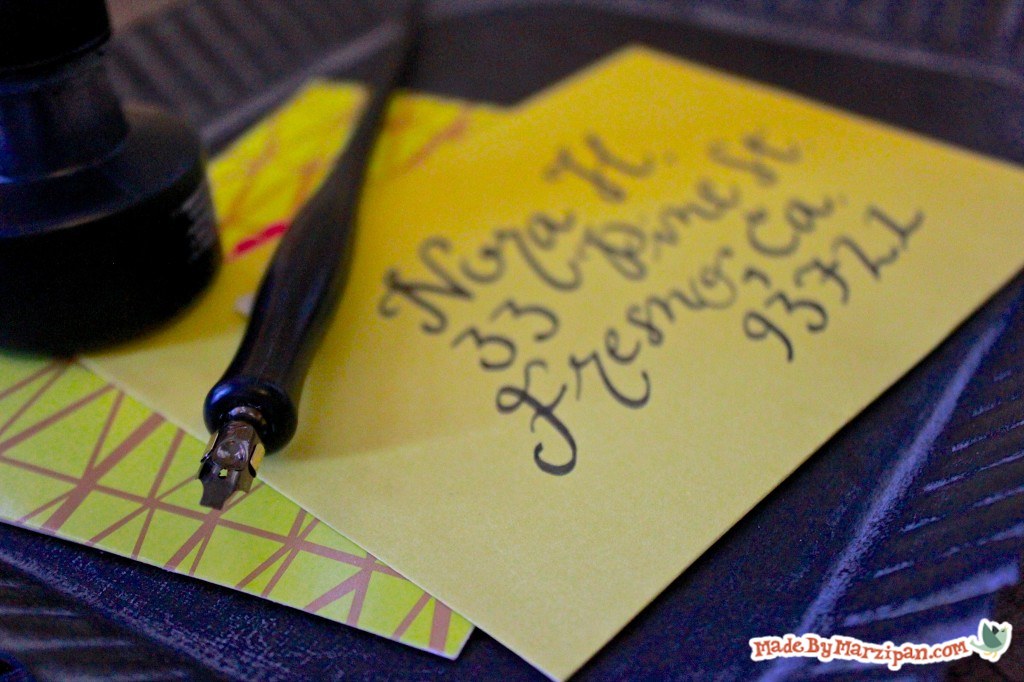 Nora H.
33 Pine St
Fresno, Ca.
93721
MadeByMarzipan.com